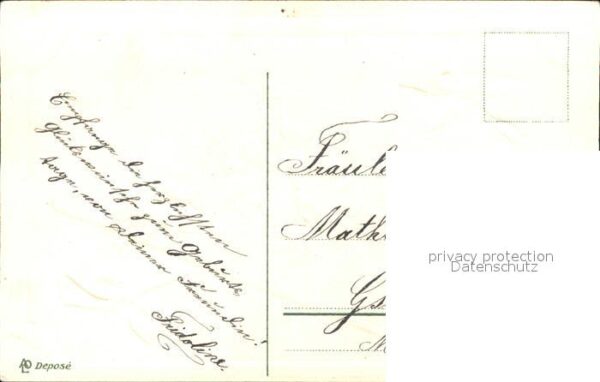 Empfange die herzlichsten
Glückwünsche zum Geburts
tage, von deiner Freundin!
Fridoline.
Fräule
Math
Gs
M
privacy protection
Datenschutz
Deposé